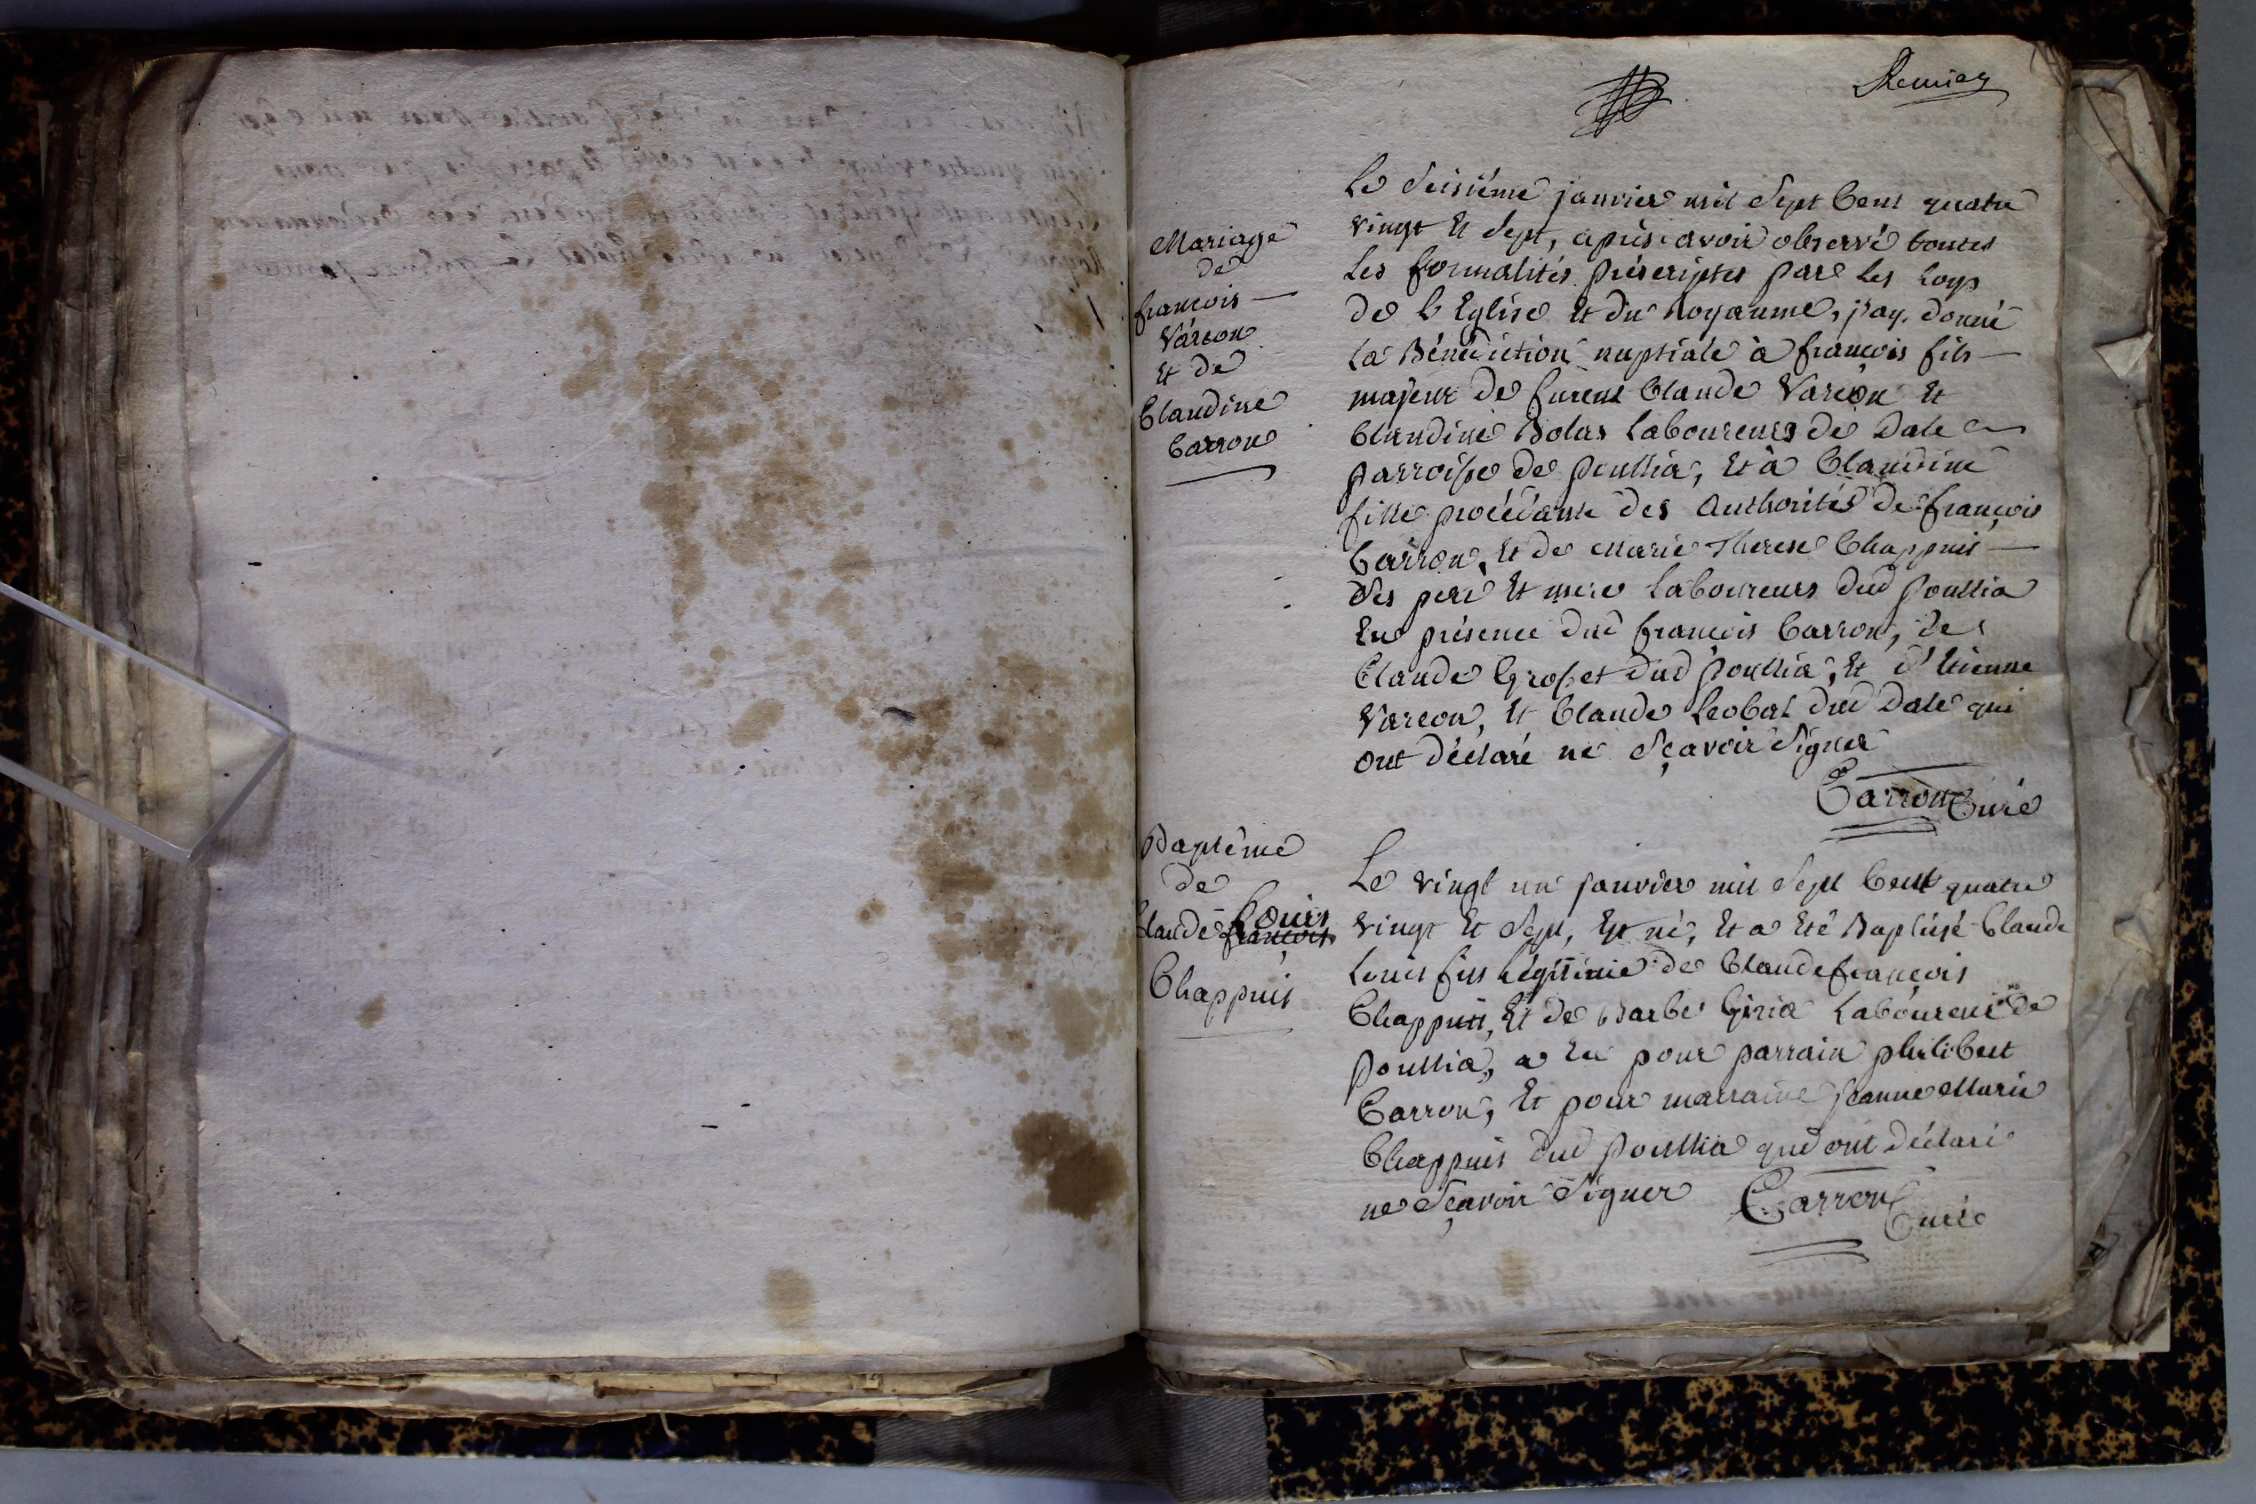 Remiay
Mariage
de
francois
Varéon
Et de
Claudine
Carron
Le Seisiéme janvier mil Sept Cent quatre
vingt Et Sept, après avoir observé toutes
Les formalités préscriptes par Les Loys
de L'Eglise Et du Royaume, j'ay donné
La Bénédiction nuptiale à francois fils
majeur de furent Claude Varéon Et
Claudine Bolas Laboureurs de Dale
parroisse de poullia, Et à Claudine
fille procédante des Authorités de françois
Carron, Et de Marie Therese Chappuis
Ses pere Et mere Laboureurs dud poullia
En présence dud francois Carron, de
Claude Grosset dud poullia, Et d'Etienne
Vareon, Et Claude Leobat dud Dale qui
ont déclaré ne Sçavoir Signer
Carron Curé
Baptême
de
Claude Louis
françois
Chappuis
Le vingt un janvier mil Sept Cent quatre
vingt Et Sept, Est né, Et a Eté Baptisé Claude
Louis fils Légitime de Claude françois
Chappuis, Et de Barbe Giria Laboureurs de
poullia, a Eu pour parrain philibert
Carron, Et pour marraine Jeanne Marie
Chappuis dud poullia qui ont déclaré
ne Sçavoir Signer Carron Curé